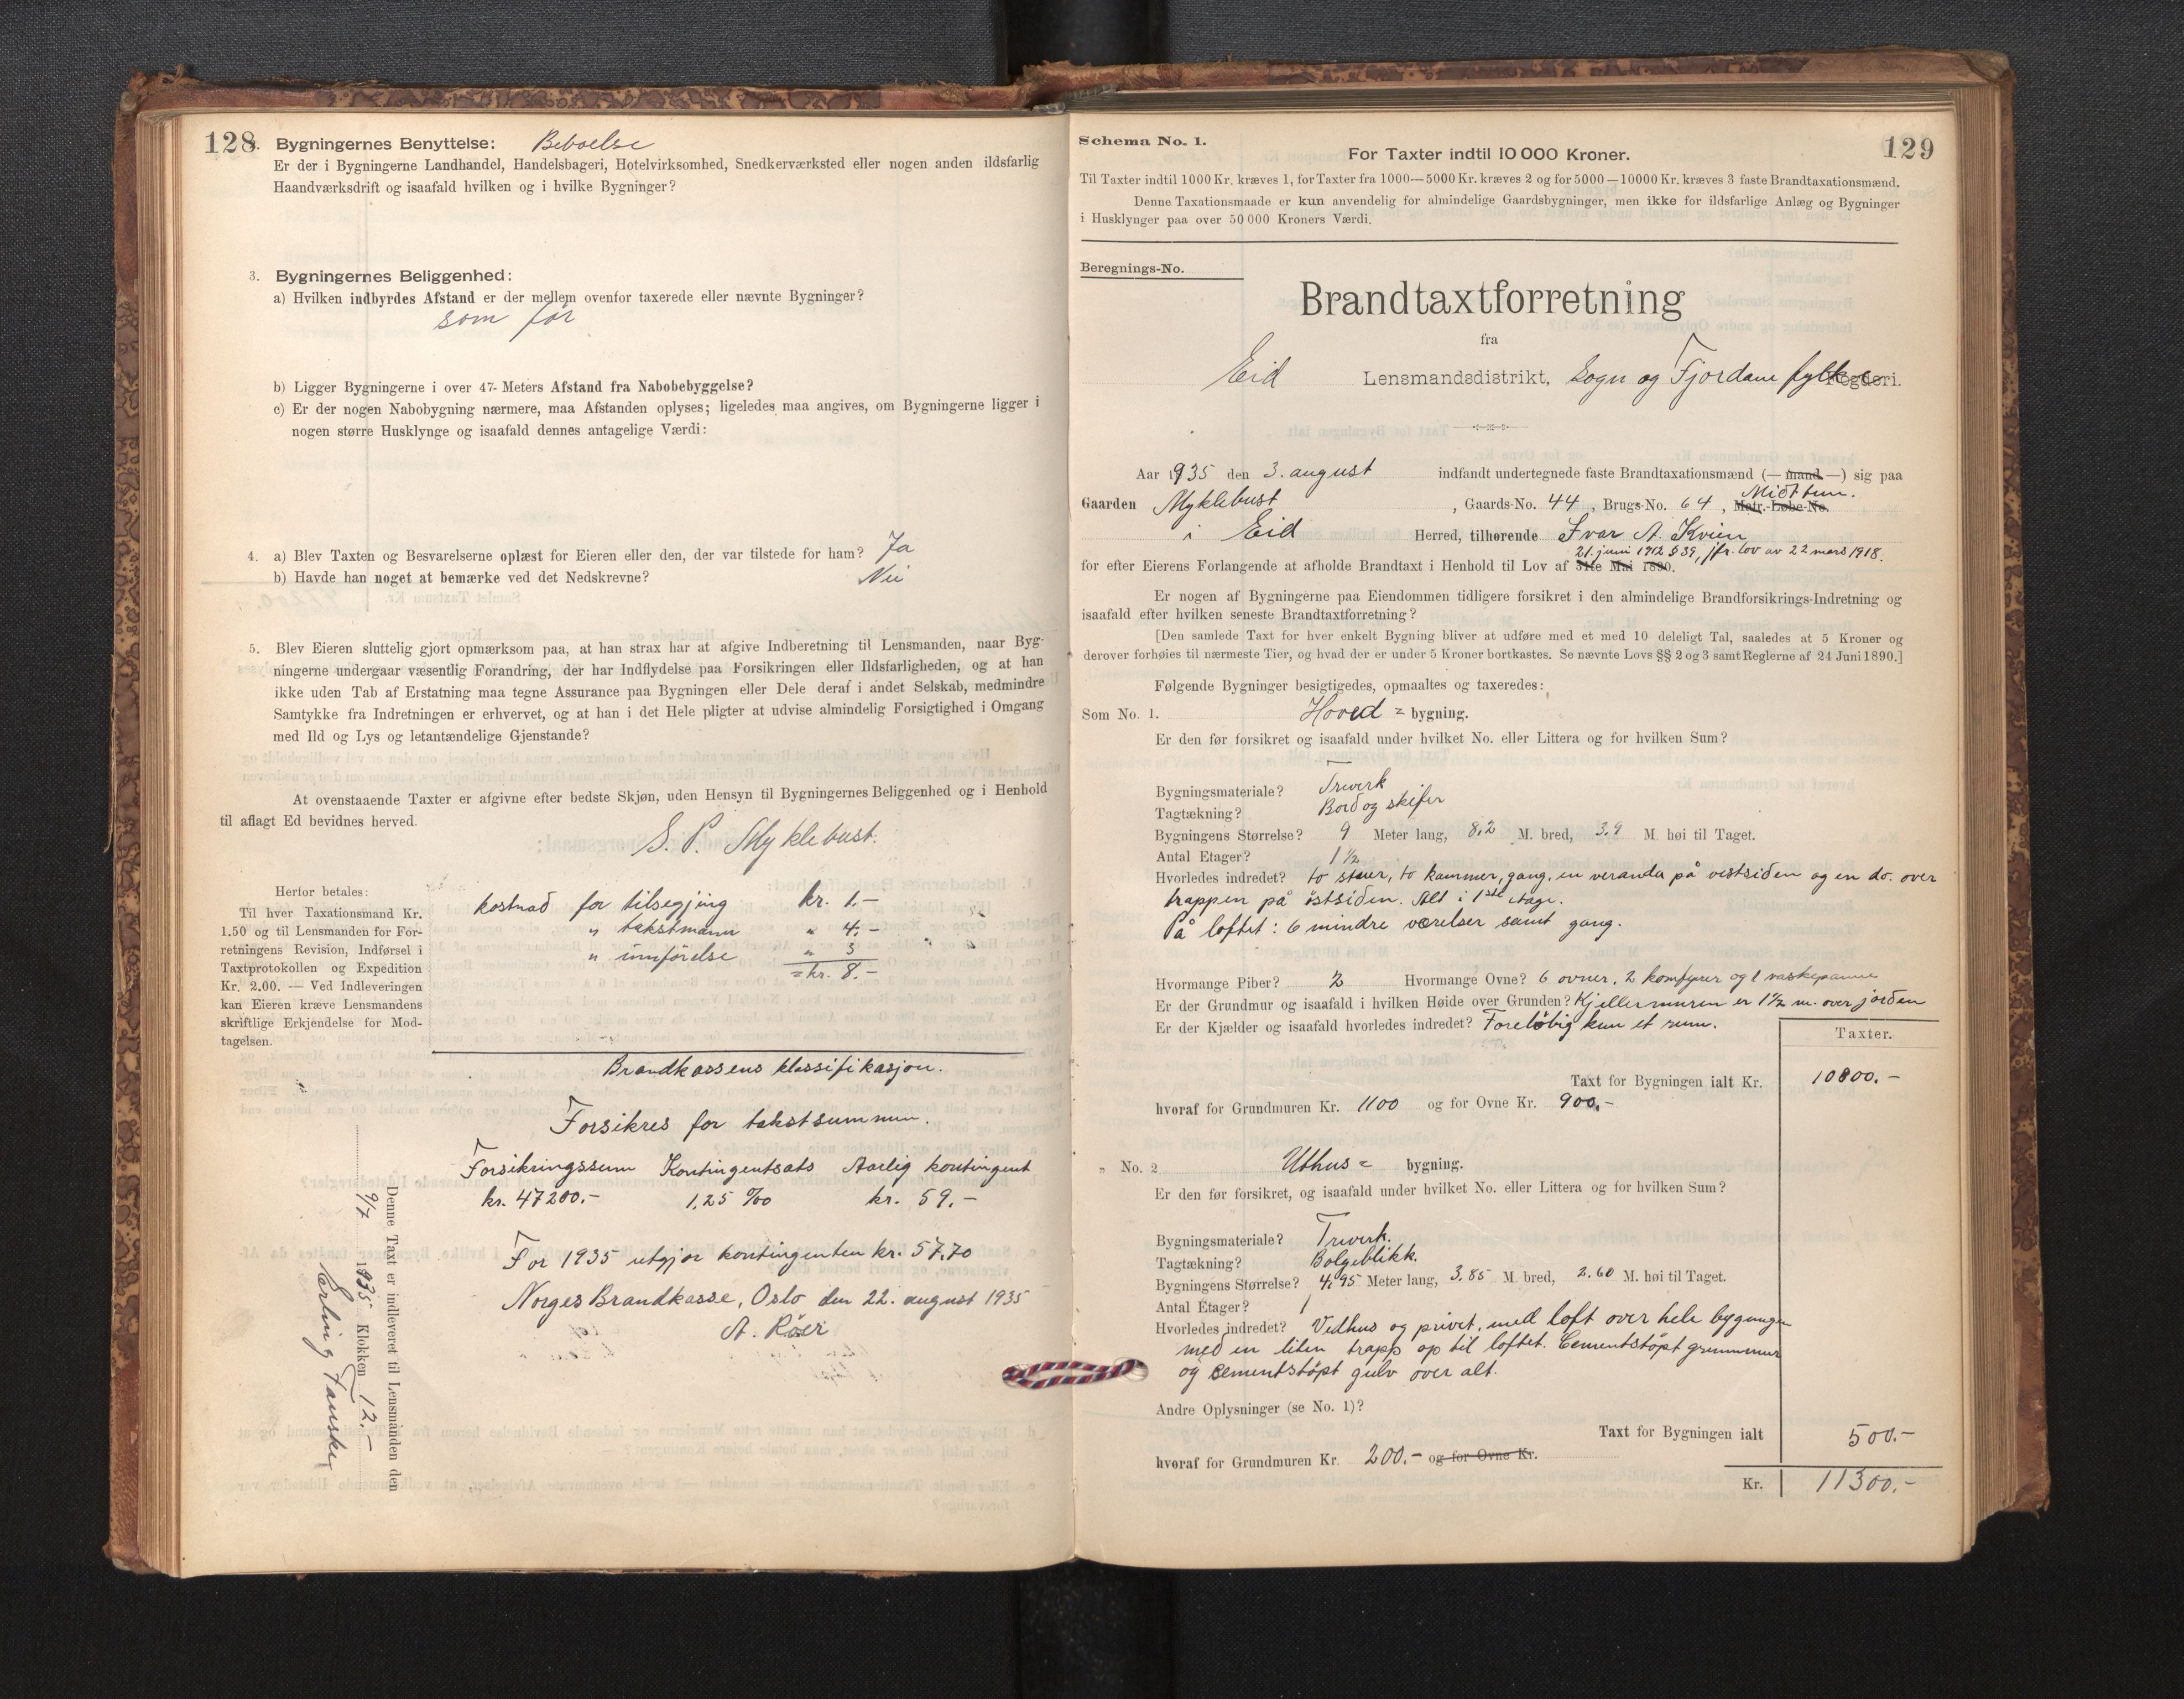 128
2. Bygningernes Benyttelse: Beboelse
Er der i Bygningerne Landhandel, Handelsbageri, Hotelvirksomhed, Snedkerværksted eller nogen anden ildsfarlig
Haandværksdrift og isaafald hvilken og i hvilke Bygninger?
3. Bygningernes Beliggenhed:
a) Hvilken indbyrdes Afstand er der mellem ovenfor taxerede eller nævnte Bygninger?
som før
b) Ligger Bygningerne i over 47 Meters Afstand fra Nabobebyggelse?
c) Er der nogen Nabobygning nærmere, maa Afstanden oplyses; ligeledes maa angives, om Bygningerne ligger i
nogen større Husklynge og isaafald dennes antagelige Værdi:
4. a) Blev Taxten og Besvarelserne oplæst for Eieren eller den, der var tilstede for ham? Ja
b) Havde han noget at bemærke ved det Nedskrevne? Nei
5. Blev Eieren sluttelig gjort opmærksom paa, at han strax har at afgive Indberetning til Lensmanden, naar Byg-
ningerne undergaar væsentlig Forandring, der har Indflydelse paa Forsikringen eller Ildsfarligheden, og at han
ikke uden Tab af Erstatning maa tegne Assurance paa Bygningen eller Dele deraf i andet Selskab, medmindre
Samtykke fra Indretningen er erhvervet, og at han i det Hele pligter at udvise almindelig Forsigtighed i Omgang
med Ild og Lys og letantændelige Gjenstande?
At ovenstaaende Taxter er afgivne efter bedste Skjøn, uden Hensyn til Bygningernes Beliggenhed og i Henhold
til aflagt Ed bevidnes herved.
S. P. Myklebust.
Herfor betales:
Til hver Taxationsmand Kr.
1.50 og til Lensmanden for For-
retningens Revision, Indførsel i
Taxtprotokollen og Expedition
Kr. 2.00. — Ved Indleveringen
kan Eieren kræve Lensmandens
skriftlige Erkjendelse for Mod-
tagelsen.
kostnad for tilsegjing kr. 1.-
" takstmann " 4.-
" innförelse " 3
= kr. 8.-
Brandkassens klassifikasjon.
Forsikres for takstsummen.
Forsikringssum Kontingentsats Aarlig kontingent
kr. 47200.- 1,25 ‰ kr. 59.-
For 1935 utgjør kontingenten kr. 57.70
Norges Brandkasse, Oslo den 22. august 1935
A. Röer
Denne Taxt er indleveret til Lensmanden den
9/7 1935 Klokken 12.-
Erling Tauske
Schema No. 1.
129
For Taxter indtil 10 000 Kroner.
Til Taxter indtil 1000 Kr. kræves 1, for Taxter fra 1000—5000 Kr. kræves 2 og for 5000—10000 Kr. kræves 3 faste Brandtaxationsmænd.
Denne Taxationsmaade er kun anvendelig for almindelige Gaardsbygninger, men ikke for ildsfarlige Anlæg og Bygninger
i Husklynger paa over 50 000 Kroners Værdi.
Beregnings-No.
Brandtaxtforretning
fra
Eid Lensmandsdistrikt, Sogn og Fjordane fylke Fogderi.
Aar 1935 den 3. august indfandt undertegnede faste Brandtaxationsmænd (— mand —) sig paa
Gaarden Myklebust, Gaards-No. 44, Brugs-No. 64, Matr.-Løbe-No. Midttun.
i Eid Herred, tilhørende Ivar A. Kvien
21. juni 1912 § 39, jfr. lov av 22 mars 1918.
for efter Eierens Forlangende at afholde Brandtaxt i Henhold til Lov af 31te Mai 1890.
Er nogen af Bygningerne paa Eiendommen tidligere forsikret i den almindelige Brandforsikrings-Indretning og
isaafald efter hvilken seneste Brandtaxtforretning?
[Den samlede Taxt for hver enkelt Bygning bliver at udføre med et med 10 deleligt Tal, saaledes at 5 Kroner og
derover forhøies til nærmeste Tier, og hvad der er under 5 Kroner bortkastes. Se nævnte Lovs §§ 2 og 3 samt Reglerne af 24 Juni 1890.]
Følgende Bygninger besigtigedes, opmaaltes og taxeredes:
Som No. 1. Hoved = bygning.
Er den før forsikret og isaafald under hvilket No. eller Littera og for hvilken Sum?
Bygningsmateriale? Treverk
Tagtækning? Bord og skifer
Bygningens Størrelse? 9 Meter lang, 8,2 M. bred, 3.9 M. høi til Taget.
Antal Etager? 1 ½
Hvorledes indredet? to stuer, to kammer, gang, en veranda på vestsiden og en do. over
trappen på östsiden. Alt i 1ste etage.
På loftet: 6 mindre værelser samt gang.
Hvormange Piber? 2 Hvormange Ovne? 6 ovner, 2 komfyrer og 1 vaskepanne
Er der Grundmur og isaafald i hvilken Høide over Grunden? Kjellermuren er 1½ m. over jorden
Er der Kjælder og isaafald hvorledes indredet? Foreløbig kun et rum.
Taxter.
Taxt for Bygningen ialt Kr. 10800.-
hvoraf for Grundmuren Kr. 1100 og for Ovne Kr. 900.-
" No. 2 Uthus = bygning.
Er den før forsikret, og isaafald under hvilket No. eller Littera og for hvilken Sum?
Bygningsmateriale? Treverk.
Tagtækning? Bølgeblikk.
Bygningens Størrelse? 4,95 Meter lang, 3.85 M. bred, 2.60 M. høi til Taget.
Antal Etager? 1
Hvorledes indredet? Vedhus og privet, med loft over hele bygningen
med en liten trapp op til loftet. Cementstöpt grunnmur
og cementstöpt gulv over alt.
Andre Oplysninger (se No. 1)?
Taxt for Bygningen ialt 500.-
hvoraf for Grundmuren Kr. 200.- og for Ovne Kr.
Kr. 11300.-